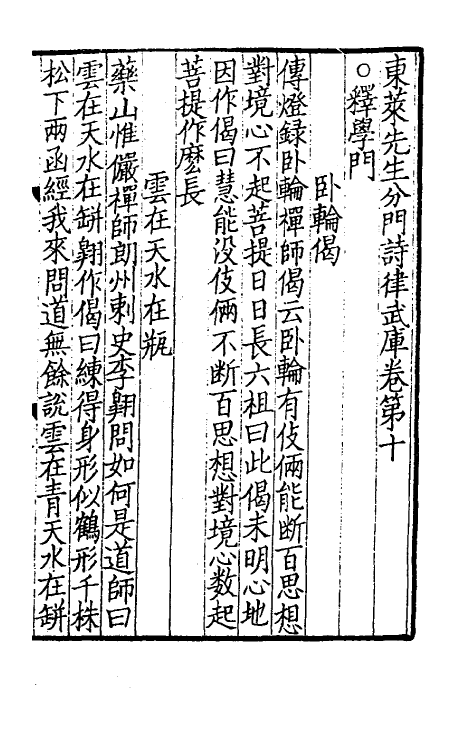 東萊先生分門詩律武庫卷第十
○釋學門
卧輪偈
傳燈録卧輪禪師偈云卧輪有伎倆能断百思想
對境心不起菩提日日長六祖曰此偈未明心地
因作偈曰慧能没伎倆不断百思想對境心数起
菩提作麽長
雲在天水在瓶
藥山惟儼禪師朗州刺史李翶問如何是道師曰
雲在天水在缾翶作偈曰練得身形似鶴形千株
松下兩函經我來問道無餘説雲在青天水在缾